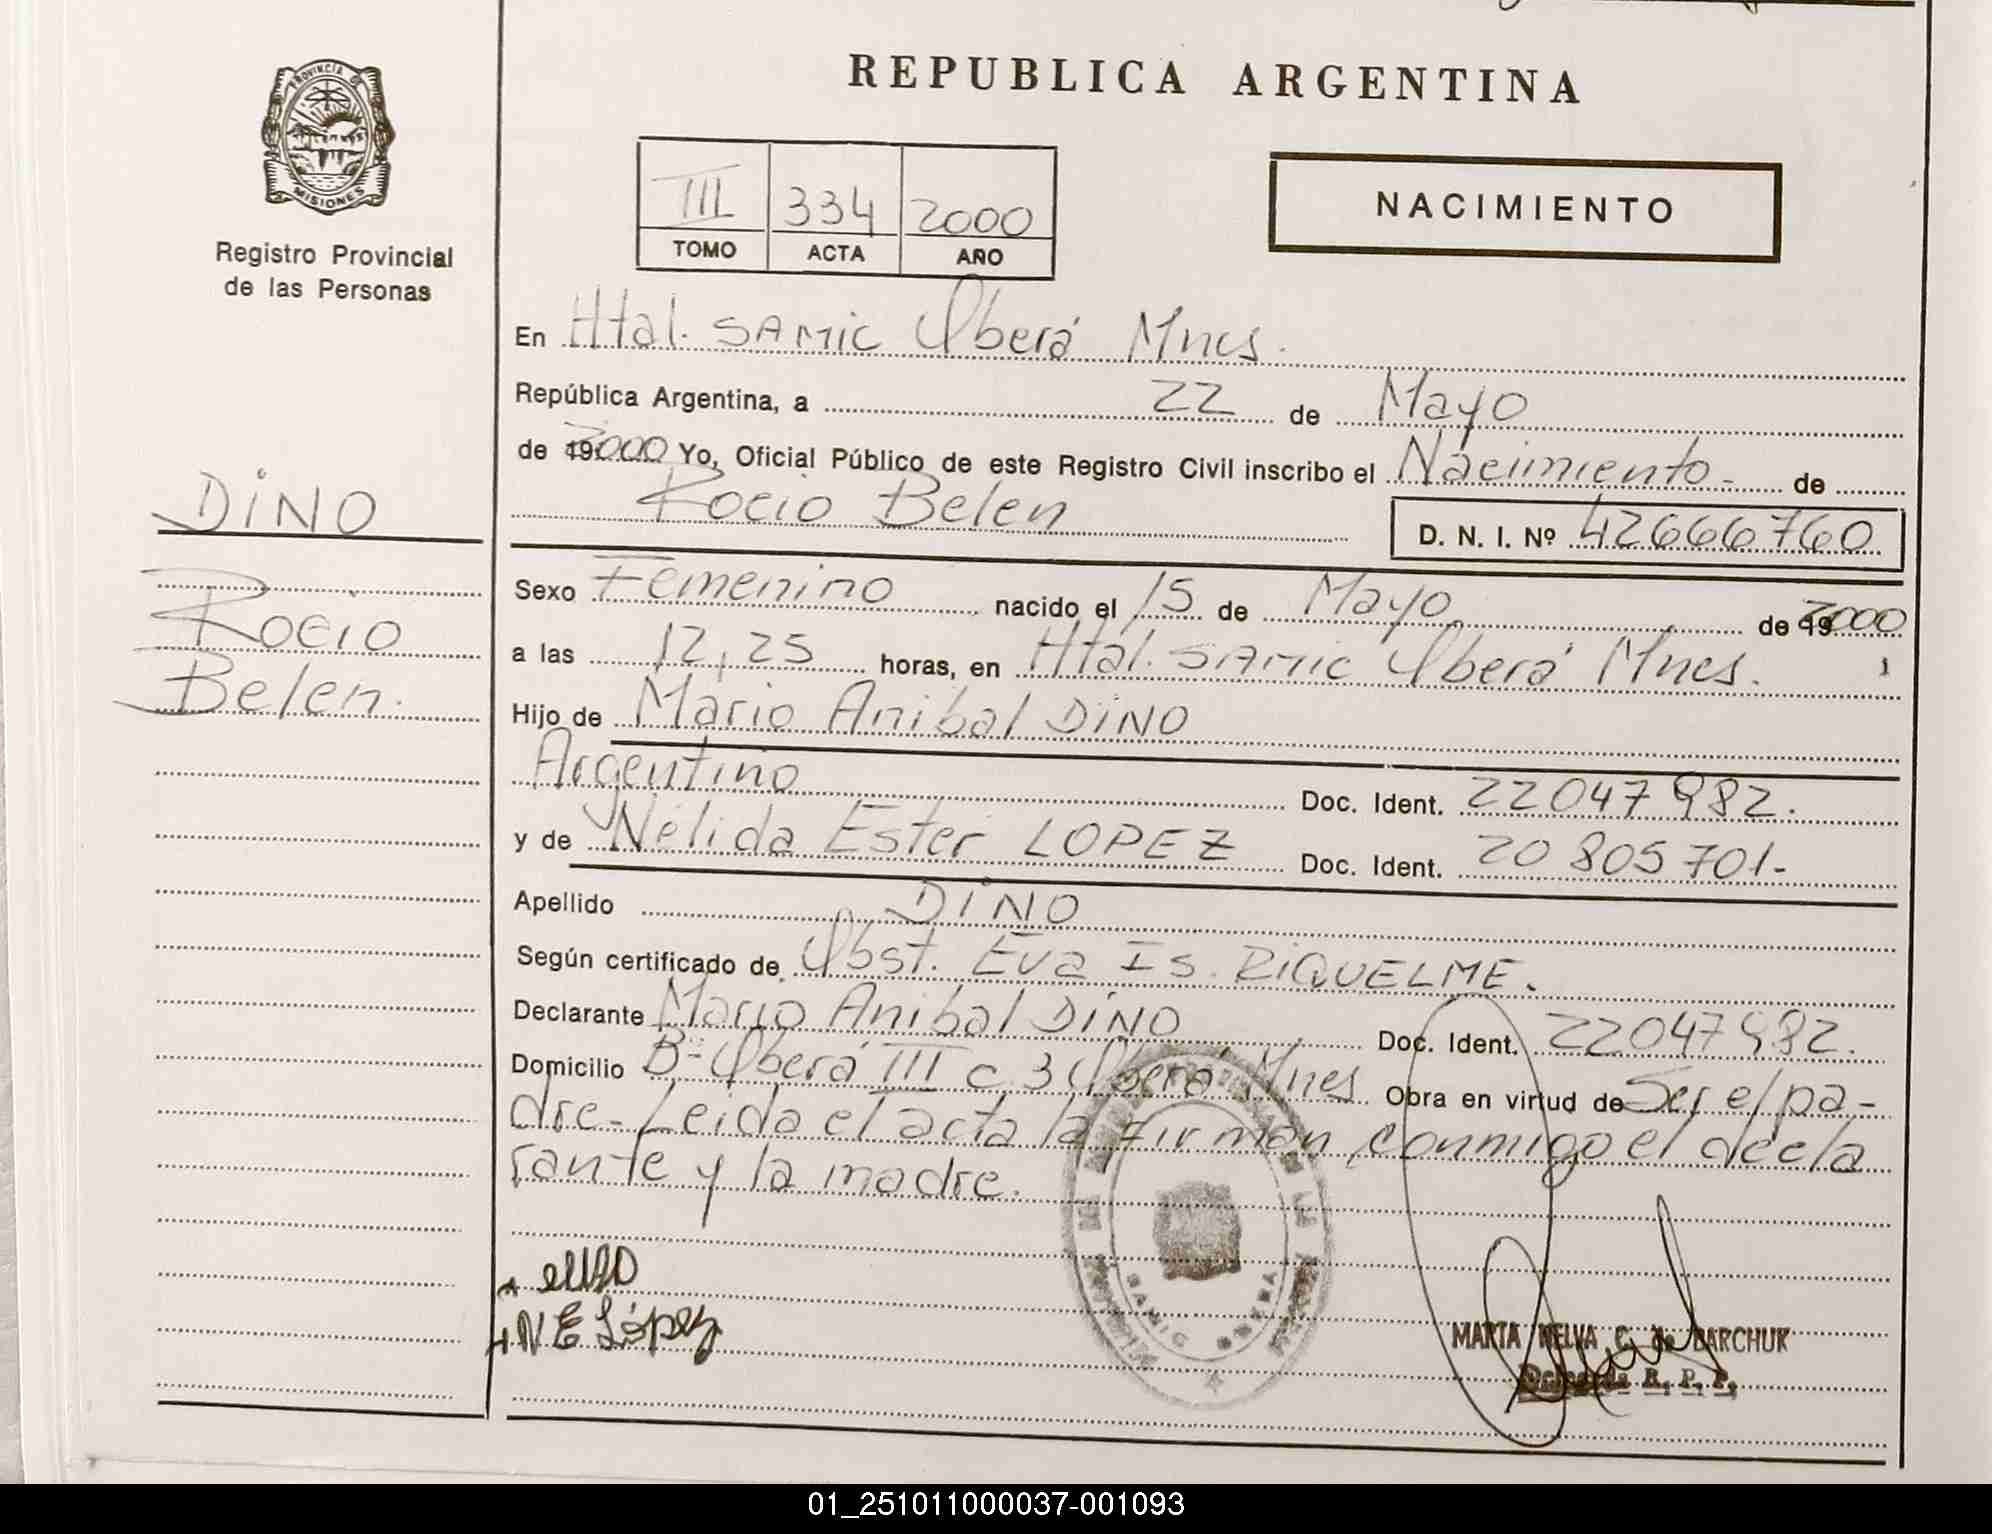 REPUBLICA ARGENTINA
PROVINCIA DE MISIONES
Registro Provincial
de las Personas
III 334 2000
TOMO ACTA AÑO
NACIMIENTO
En Htal. SAMIC Oberá Mnes.
República Argentina, a 22 de Mayo
de 192000 Yo, Oficial Público de este Registro Civil inscribo el Nacimiento- de
Rocio Belen
D. N. I. Nº 42666760
DINO
Rocio
Belen.
Sexo Femenino nacido el 15 de Mayo de 192000
a las 12,25 horas, en Htal. SAMIC Oberá Mnes.
Hijo de Mario Anibal DINO
Argentino Doc. Ident. 22047982.
y de Nélida Ester LOPEZ Doc. Ident. 20805701-
Apellido DINO
Según certificado de Obst. Eva Is. RIQUELME.
Declarante Mario Anibal DINO Doc. Ident. 22047982.
Domicilio Bº Oberá III c. 3 Oberá Mnes Obra en virtud de Ser el pa-
dre- Leida el acta la firman conmigo el decla
rante y la madre.
N E López
SAMIC OBERA
MARTA NELVA C. de BARCHUK
Delegada R. P. P.
01_251011000037-001093